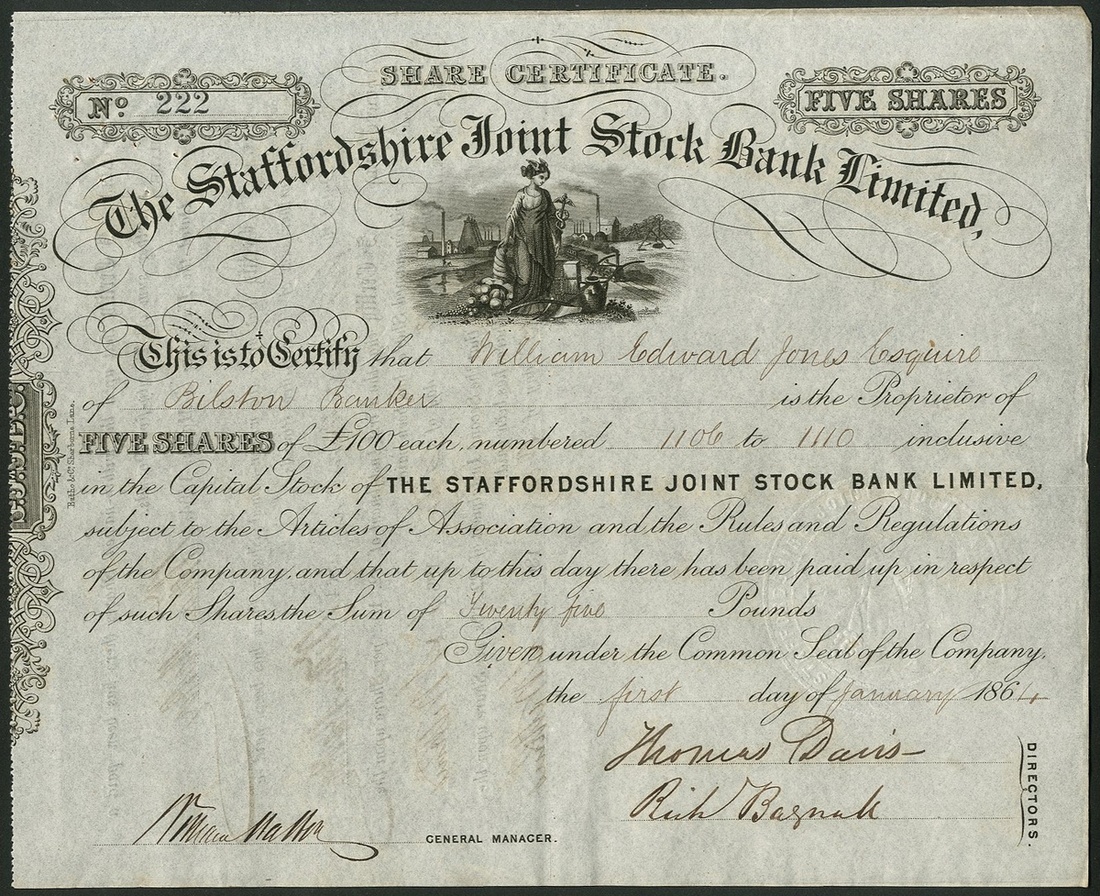 SHARE CERTIFICATE.
No. 222
FIVE SHARES
The Staffordshire Joint Stock Bank Limited,
This is to Certify that William Edward Jones Esquire
of Bilston Banker is the Proprietor of
FIVE SHARES of £100 each, numbered 1106 to 1110 inclusive
in the Capital Stock of THE STAFFORDSHIRE JOINT STOCK BANK LIMITED,
subject to the Articles of Association and the Rules and Regulations
of the Company, and that up to this day there has been paid up in respect
of such Shares, the Sum of Twenty five Pounds
Given under the Common Seal of the Company,
the first day of January 1864
Thomas Davis
Rich Bagnall
DIRECTORS.
GENERAL MANAGER.